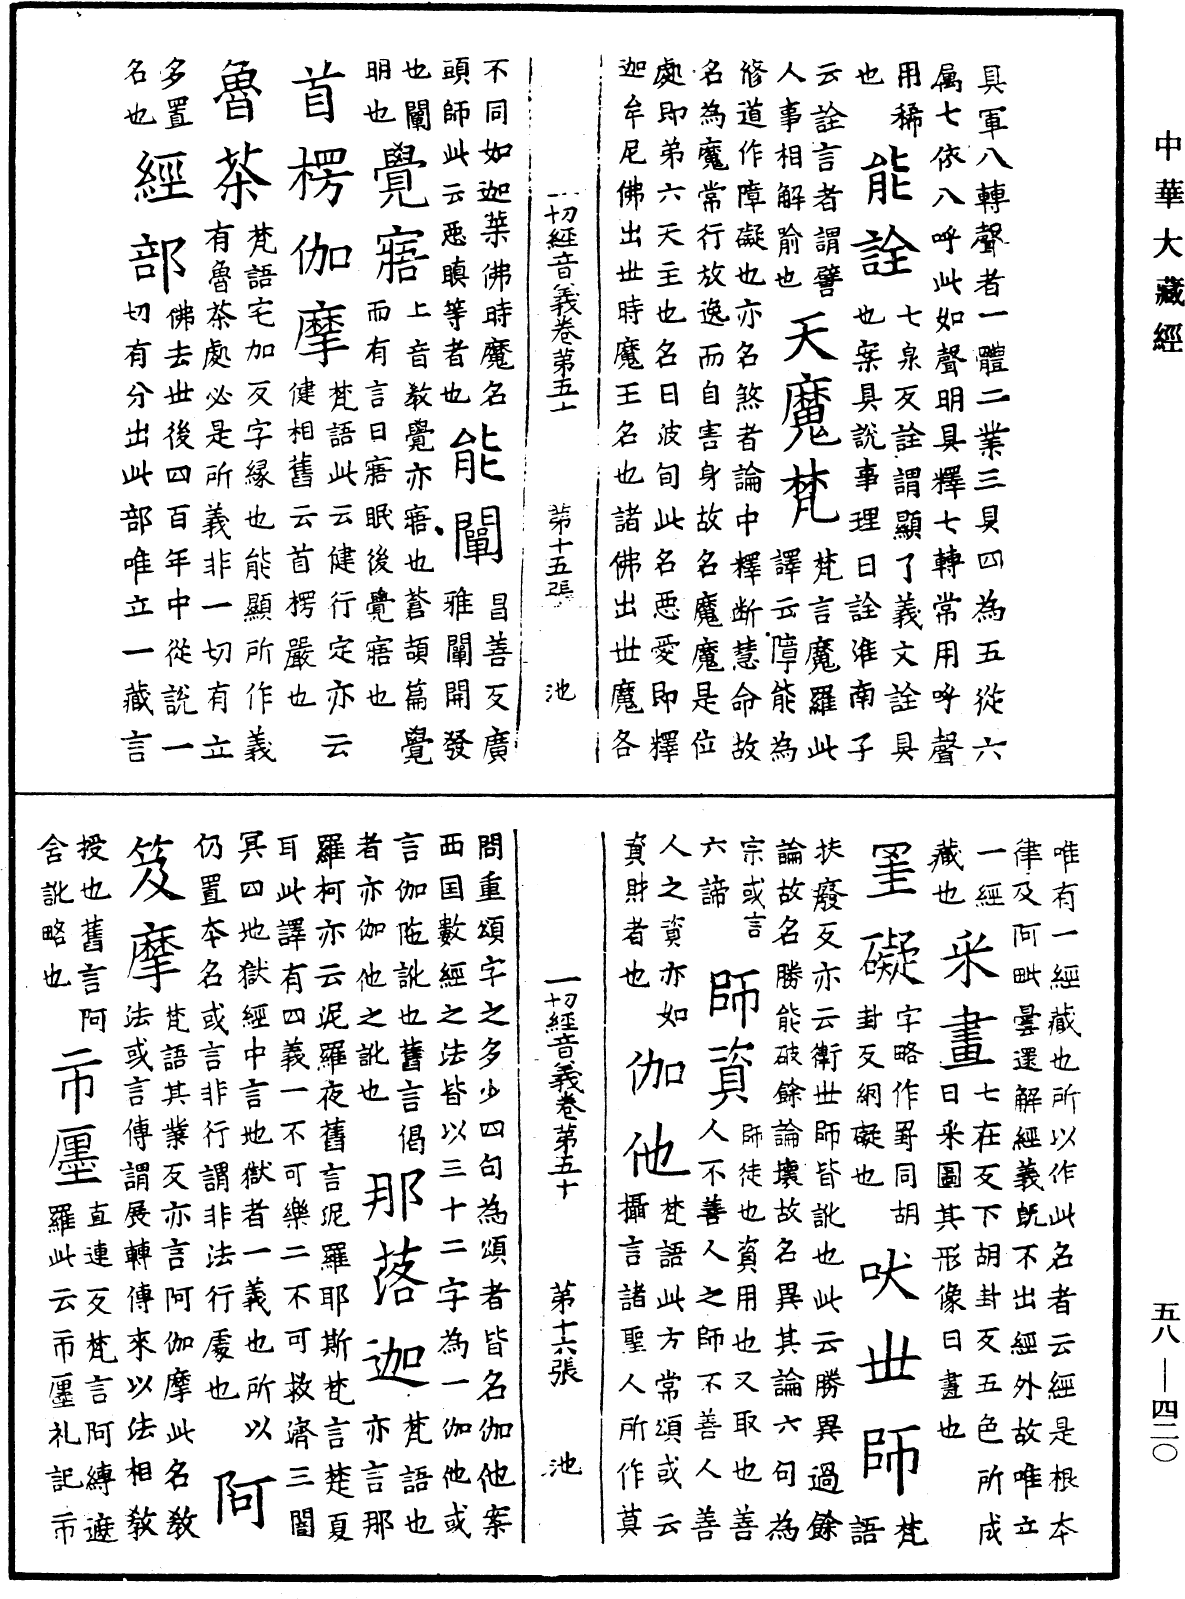 中華大藏經
具軍八轉聲者一體二業三具四為五從六
属七依八呼此如聲明具釋七轉常用呼聲
用稀
也
能詮
七泉反詮謂顯了義文詮具
也案具說事理曰詮淮南子
云詮言者謂譬
人事相解喻也
天魔梵
梵言魔羅此
譯云障能為
修道作障礙也亦名煞者論中釋断慧命故
名為魔常行放逸而自害身故名魔魔是位
處即第六天主也名曰波旬此名惡愛即釋
迦牟尼佛出世時魔王名也諸佛出世魔各
一切經音義卷第五十 第十五張 池
不同如迦葉佛時魔名
頭師此云惡瞋等者也
能闡
昌善反廣
雅闡開發
也闡
明也
覺寤
上音教覺亦寤也蒼頡篇覺
而有言曰寤眠後覺寤也
首楞伽摩
梵語此云健行定亦云
健相舊云首楞嚴也
魯荼
梵語宅加反字緣也能顯所作義
有魯荼處必是所義非一切有立
多置
名也
經部
佛去世後四百年中從說一
切有分出此部唯立一藏言
唯有一經藏也所以作此名者云經是根本
律及阿毗曇還解經義既不出經外故唯立
一經
藏也
采畫
七在反下胡封反五色所成
曰采圖其形像曰畫也
罣礙
字略作罫同胡
封反網礙也
吠世師
梵
語
扶廢反亦云衛世師皆訛也此云勝異過餘
論故名勝能破餘論壞故名異其論六句為
宗或言
六諦
師資
師徒也資用也又取也善
人不善人之師不善人善
人之資亦如
資財者也
伽他
梵語此方常頌或云
攝言諸聖人所作莫
問重頌字之多少四句為頌者皆名伽他案
西国數經之法皆以三十二字為一伽他或
言伽陁訛也舊言偈
者亦伽他之訛也
那落迦
梵語也
亦言那
羅柯亦云泥羅夜舊言泥羅耶斯梵言楚夏
耳此譯有四義一不可樂二不可救濟三闇
冥四地獄經中言地獄者一義也所以
仍置本名或言非行謂非法行處也
阿
笈摩
梵語其業反亦言阿伽摩此名教
法或言傳謂展轉傳來以法相教
授也舊言阿
含訛略也
帀㕓
直連反梵言阿縛遮
羅此云帀㕓礼記帀
一切經音義卷第五十 第十六張 池
五八—四二〇